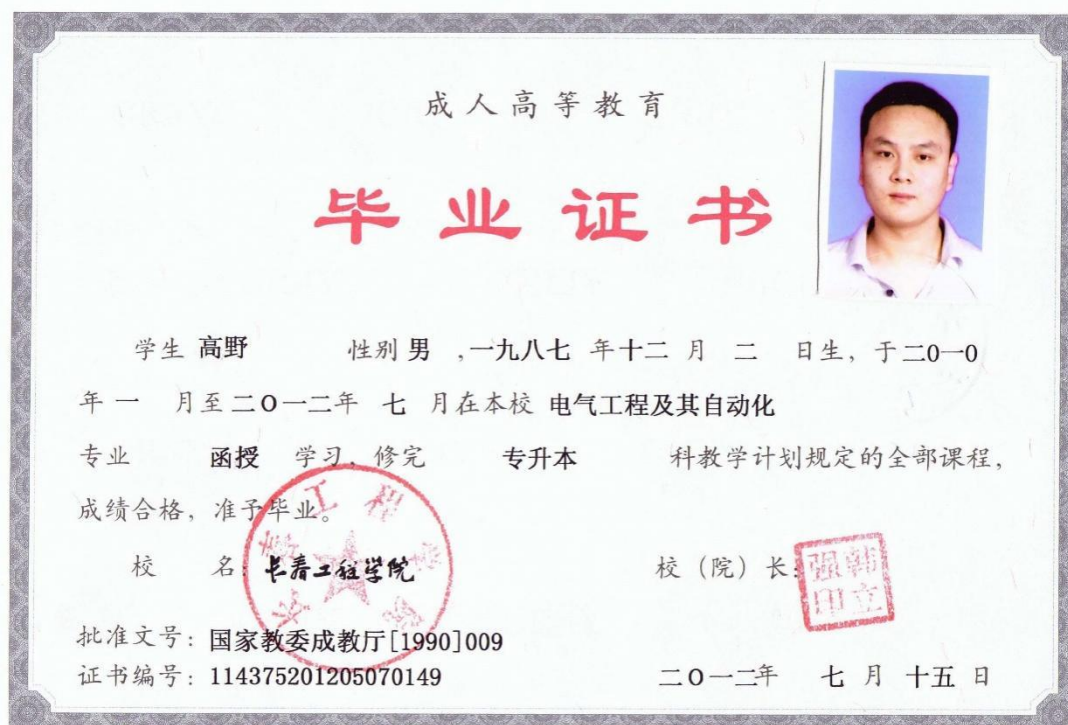 成人高等教育
毕业证书
学生 高野 性别 男 ,一九八七 年十二 月 二 日生，于二0一0
年 一 月至二0一二年 七 月在本校 电气工程及其自动化
专业 函授 学习，修完 专升本 科教学计划规定的全部课程，
成绩合格，准予毕业。
校 名：长春工程学院 校（院）长：
长春工程学院
韩立强印
批准文号：国家教委成教厅[1990]009
证书编号：114375201205070149 二0一二年 七 月 十五 日